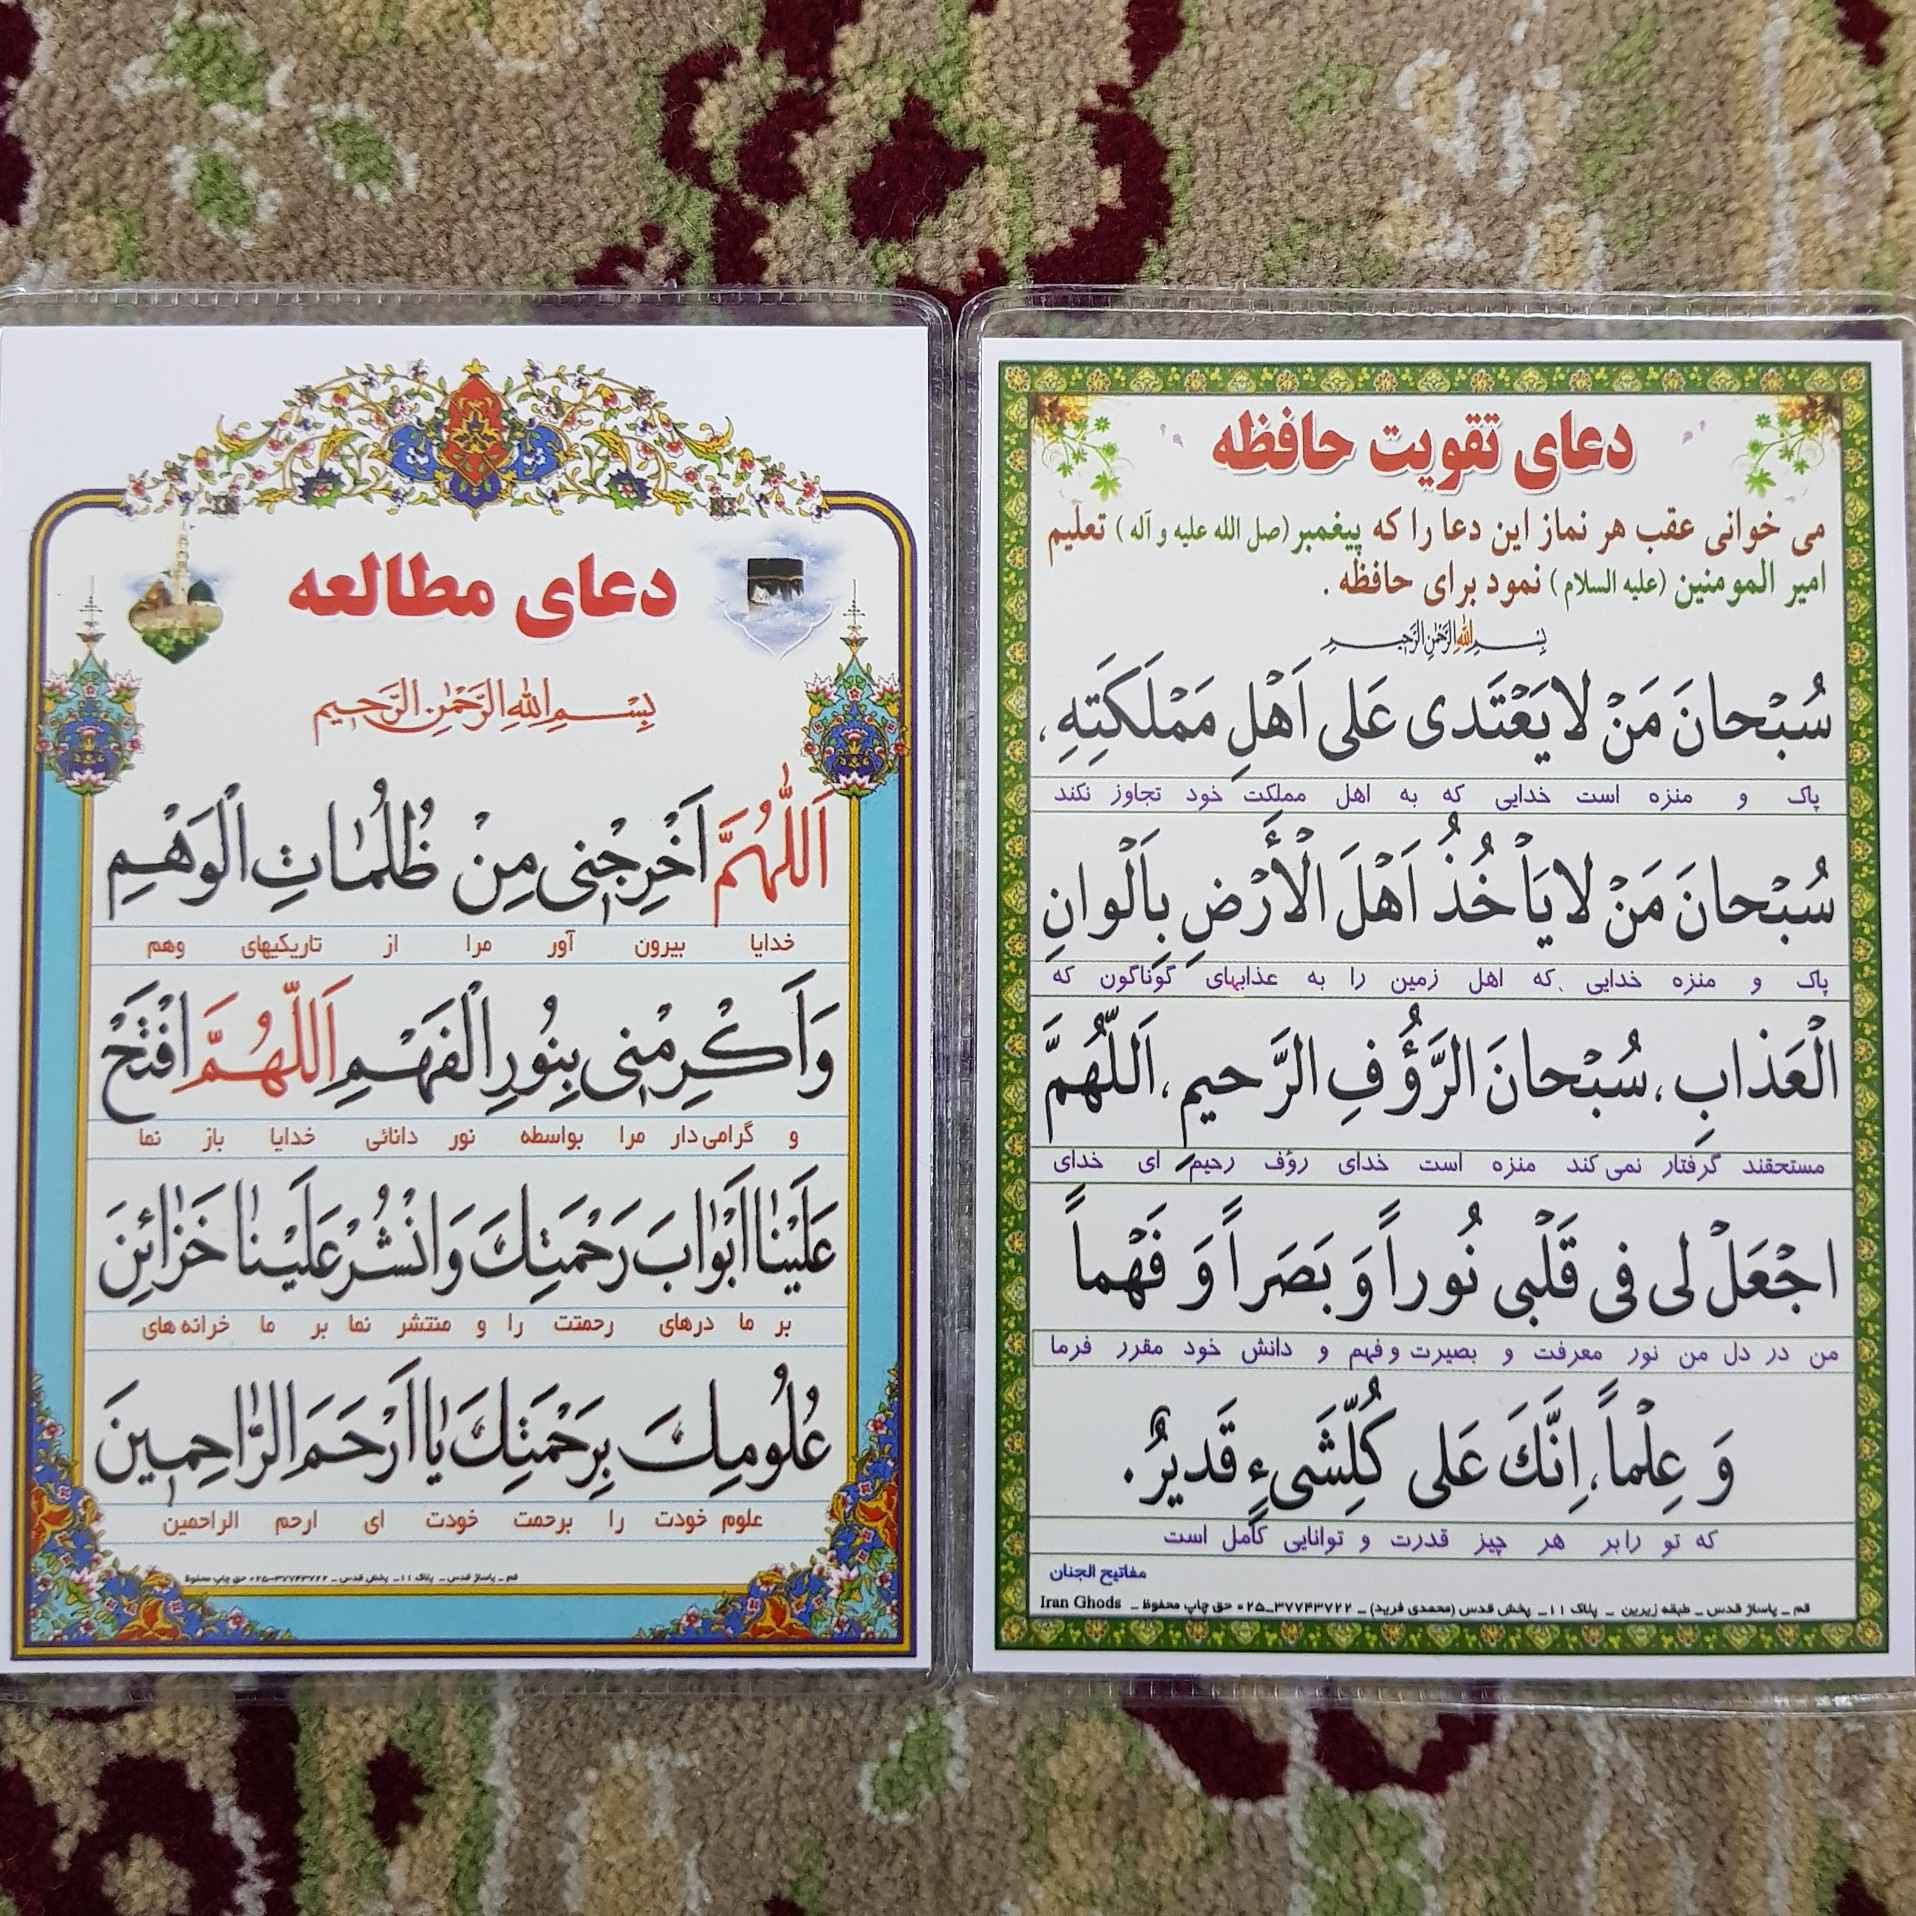 دعای تقویت حافظه
می خوانی عقب هر نماز این دعا را که پیغمبر (صل الله علیه و آله) تعلیم
امیر المومنین (علیه السلام) نمود برای حافظه .
بِسْمِ اللهِ الرَّحْمٰنِ الرَّحیمِ
سُبْحانَ مَنْ لایَعْتَدی عَلی اَهْلِ مَمْلَکَتِهِ،
پاک و منزه است خدایی که به اهل مملکت خود تجاوز نکند
سُبْحانَ مَنْ لایَأْخُذُ اَهْلَ الْأَرْضِ بِاَلْوانِ
پاک و منزه خدایی که اهل زمین را به عذابهای گوناگون که
الْعَذابِ، سُبْحانَ الرَّؤُفِ الرَّحیمِ، اَللّهُمَّ
مستحقند گرفتار نمی کند منزه است خدای رؤف رحیم ای خدای
اجْعَلْ لی فی قَلْبی نُوراً وَ بَصَراً وَ فَهْماً
من در دل من نور معرفت و بصیرت و فهم و دانش خود مقرر فرما
وَ عِلْماً، اِنَّکَ عَلی کُلِّشَیءٍ قَدیرٌ.
که تو رابر هر چیز قدرت و توانایی کامل است
مفاتیح الجنان
قم _ پاساژ قدس _ طبقه زیرین _ پلاک ۱۱_ پخش قدس (محمدی فرید) _ ۳۷۷۴۳۷۲۲_۰۲۵ حق چاپ محفوظ _ Iran Ghods
دعای مطالعه
بِسْمِ اللهِ الرَّحْمٰنِ الرَّحیمِ
اَللّٰهُمَّ اَخْرِجْنی مِنْ ظُلُمٰاتِ الْوَهْمِ
خدایا بیرون آور مرا از تاریکیهای وهم
وَاَکْرِمْنی بِنُورِ الْفَهْمِ اَللّهُمَّ افْتَحْ
و گرامی دار مرا بواسطه نور دانائی خدایا باز نما
عَلَیْنٰا اَبْوٰابَ رَحْمَتِکَ وَانْشُرْ عَلَیْنٰا خَزٰائِنَ
بر ما درهای رحمتت را و منتشر نما بر ما خزانه های
عُلُومِکَ بِرَحْمَتِکَ یٰا اَرْحَمَ الرّٰاحِمینَ
علوم خودت را برحمت خودت ای ارحم الراحمین
قم _ پاساژ قدس _ پلاک ۱۱_ پخش قدس _ ۳۷۷۴۳۷۲۲_۰۲۵ حق چاپ محفوظ